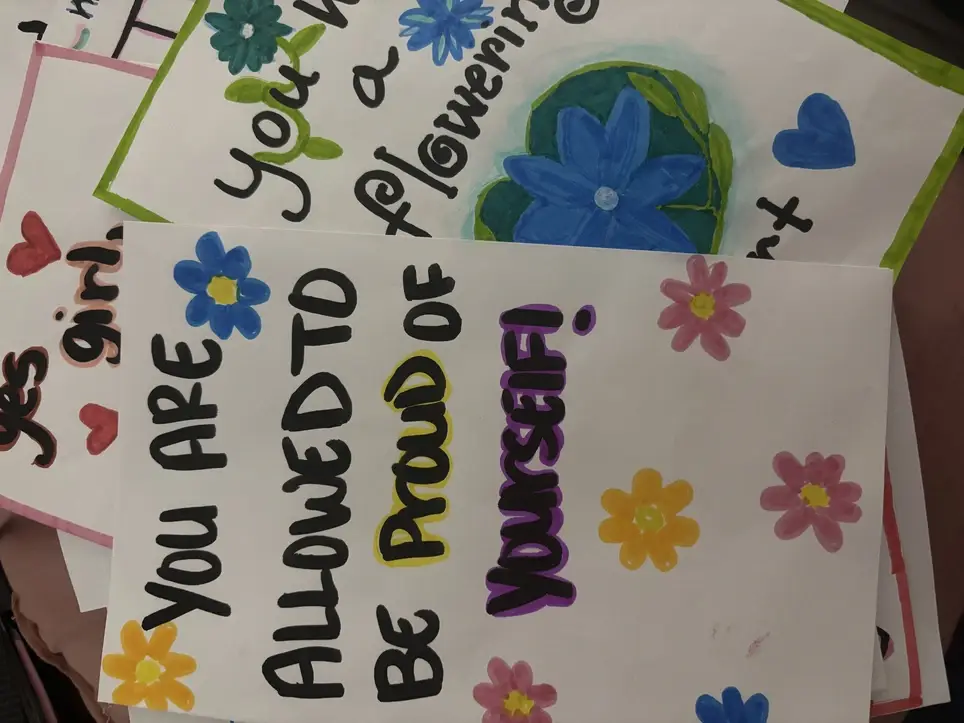 YOU ARE
ALLOWED TO
BE PROUD OF
YOURSELF!
You
a
flowering
yes
girl,